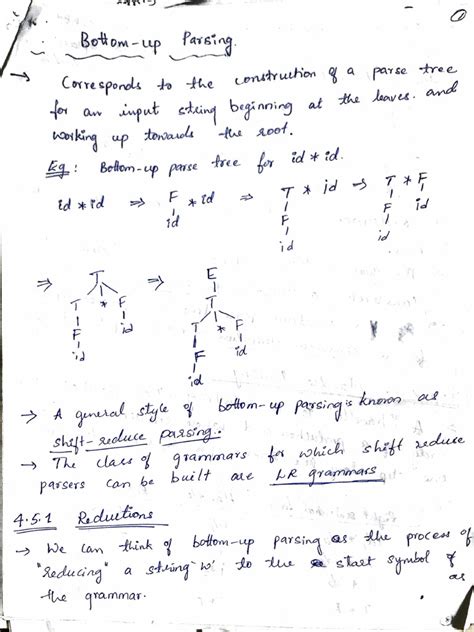 ①
Bottom-up Parsing.
→ Corresponds to the construction of a parse tree
for an input string beginning at the leaves and
working up towards the root.
Eg: Bottom-up parse tree for id * id.
id * id ⇒ F * id ⇒ T * id ⇒ T * F
id F F id
id id
⇒ T ⇒ E
T * F T
F id T * F
id F id
id
→ A general style of bottom-up parsing is known as
shift-reduce parsing.
→ The class of grammars for which shift reduce
parsers can be built are LR grammars
4.5.1 Reductions
→ We can think of bottom-up parsing as the process of
"reducing" a string 'w', to the start symbol of
the grammar.